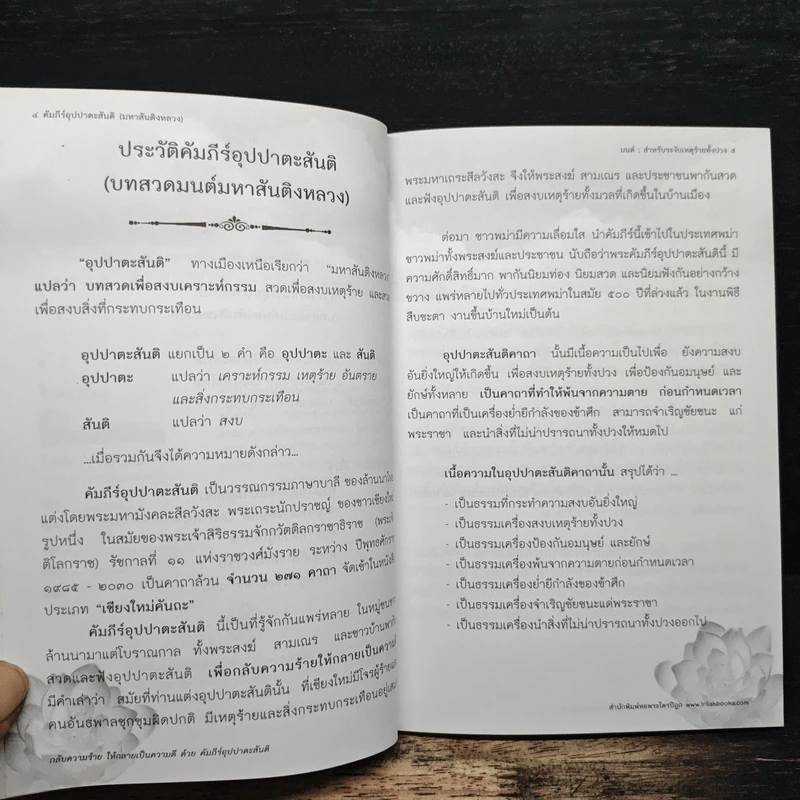 ๔ คัมภีร์อุปปาตะสันติ (มหาสันติงหลวง)
ประวัติคัมภีร์อุปปาตะสันติ
(บทสวดมนต์มหาสันติงหลวง)
"อุปปาตะสันติ" ทางเมืองเหนือเรียกว่า "มหาสันติงหลว
แปลว่า บทสวดเพื่อสงบเคราะห์กรรม สวดเพื่อสงบเหตุร้าย และสวด
เพื่อสงบสิ่งที่กระทบกระเทือน
อุปปาตะสันติ แยกเป็น ๒ คำ คือ อุปปาตะ และ สันติ
อุปปาตะ แปลว่า เคราะห์กรรม เหตุร้าย อันตราย
และสิ่งกระทบกระเทือน
สันติ แปลว่า สงบ
...เมื่อรวมกันจึงได้ความหมายดังกล่าว...
คัมภีร์อุปปาตะสันติ เป็นวรรณกรรมภาษาบาลี ของล้านนาไทย
แต่งโดยพระมหามังคละสีลวังสะ พระเถระนักปราชญ์ ของชาวเชียงใหม่
รูปหนึ่ง ในสมัยของพระเจ้าสิริธรรมจักกวัตติลกราชาธิราช (พระเจ้า
ติโลกราช) รัชกาลที่ ๑๑ แห่งราชวงศ์มังราย ระหว่าง ปีพุทธศักรา
๑๙๘๕ - ๒๐๓๐ เป็นคาถาล้วน จำนวน ๒๗๑ คาถา จัดเข้าในหนังสื
ประเภท "เชียงใหม่คันถะ"
คัมภีร์อุปปาตะสันติ นี้เป็นที่รู้จักกันแพร่หลาย ในหมู่ชนชาว
ล้านนามาแต่โบราณกาล ทั้งพระสงฆ์ สามเณร และชาวบ้านพากั
สวดและฟังอุปปาตะสันติ เพื่อกลับความร้ายให้กลายเป็นความดี
มีคำเล่าว่า สมัยที่ท่านแต่งอุปปาตะสันตินั้น ที่เชียงใหม่มีโจรผู้ร้ายแล
คนอันธพาลชุกชุมผิดปกติ มีเหตุร้ายและสิ่งกระทบกระเทือนอยู่เสม
กลับความร้าย ให้กลายเป็นความดี ด้วย คัมภีร์อุปปาตะสันติ
มนต์ : สำหรับระงับเหตุร้ายทั้งปวง ๕
พระมหาเถระสีลวังสะ จึงให้พระสงฆ์ สามเณร และประชาชนพากันสวด
และฟังอุปปาตะสันติ เพื่อสงบเหตุร้ายทั้งมวลที่เกิดขึ้นในบ้านเมือง
ต่อมา ชาวพม่ามีความเลื่อมใส นำคัมภีร์นี้เข้าไปในประเทศพม่า
ชาวพม่าทั้งพระสงฆ์และประชาชน นับถือว่าพระคัมภีร์อุปปาตะสันตินี้ มี
ความศักดิ์สิทธิ์มาก พากันนิยมท่อง นิยมสวด และนิยมฟังกันอย่างกว้าง
ขวาง แพร่หลายไปทั่วประเทศพม่าในสมัย ๕๐๐ ปีที่ล่วงแล้ว ในงานพิธี
สืบชะตา งานขึ้นบ้านใหม่เป็นต้น
อุปปาตะสันติคาถา นั้นมีเนื้อความเป็นไปเพื่อ ยังความสงบ
อันยิ่งใหญ่ให้เกิดขึ้น เพื่อสงบเหตุร้ายทั้งปวง เพื่อป้องกันอมนุษย์ และ
ยักษ์ทั้งหลาย เป็นคาถาที่ทำให้พ้นจากความตาย ก่อนกำหนดเวลา
เป็นคาถาที่เป็นเครื่องย่ำยีกำลังของข้าศึก สามารถจำเริญชัยชนะ แก่
พระราชา และนำสิ่งที่ไม่น่าปรารถนาทั้งปวงให้หมดไป
เนื้อความในอุปปาตะสันติคาถานั้น สรุปได้ว่า ...
- เป็นธรรมที่กระทำความสงบอันยิ่งใหญ่
- เป็นธรรมเครื่องสงบเหตุร้ายทั้งปวง
- เป็นธรรมเครื่องป้องกันอมนุษย์ และยักษ์
- เป็นธรรมเครื่องพ้นจากความตายก่อนกำหนดเวลา
- เป็นธรรมเครื่องย่ำยีกำลังของข้าศึก
- เป็นธรรมเครื่องจำเริญชัยชนะแด่พระราชา
- เป็นธรรมเครื่องนำสิ่งที่ไม่น่าปรารถนาทั้งปวงออกไป
สำนักพิมพ์หอพระไตรปิฎก www.trilakbooks.com